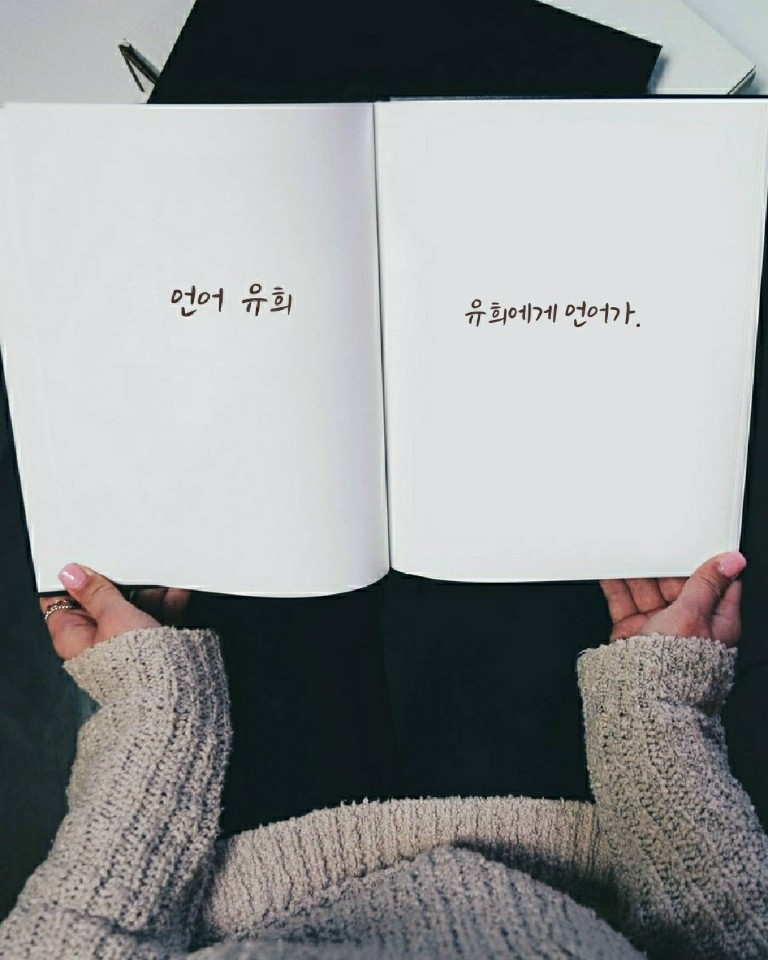 언어 유희
유희에게 언어가.